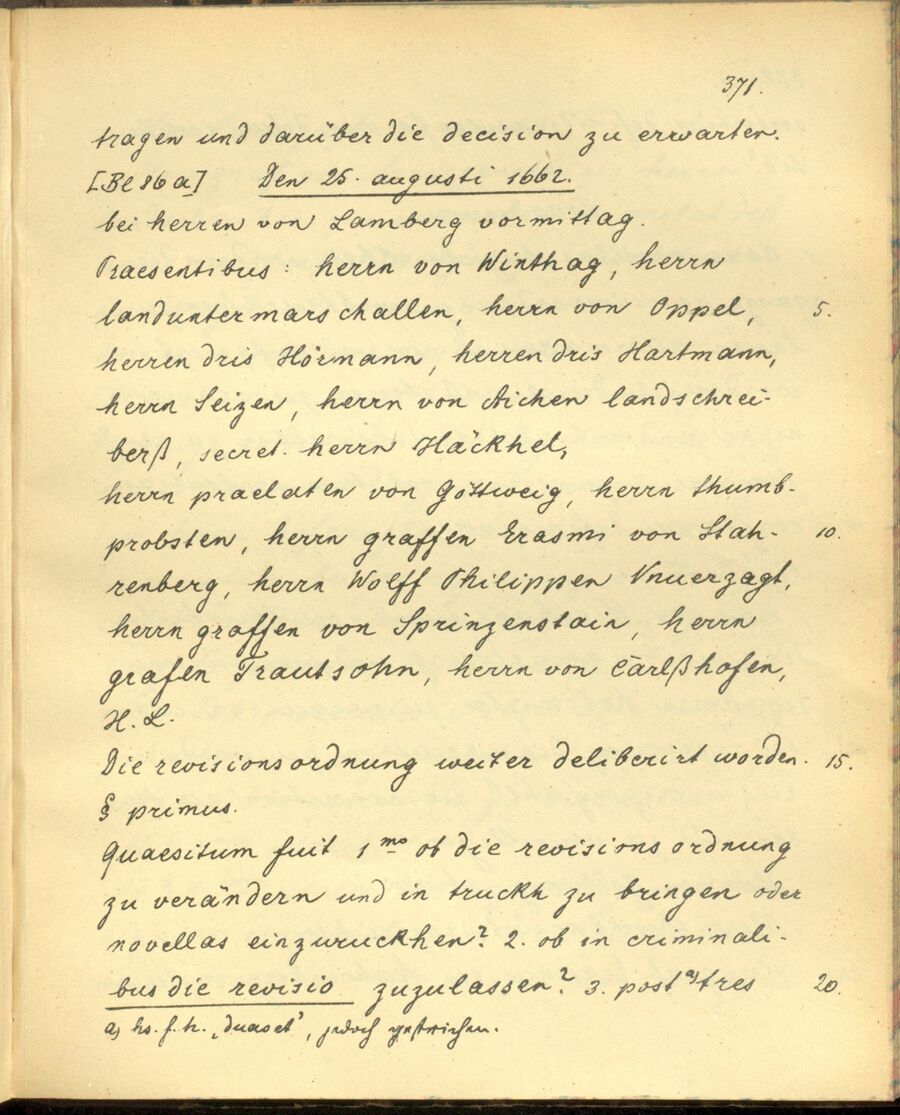 371.
tragen und darüber die decision zu erwarten.
[Bl 86 a] Den 25. augusti 1662.
bei herren von Lamberg vormittag.
Praesentibus: herrn von Winthag, herrn
landuntermarschallen, herrn von Oppel, 5.
herren dris Hörmann, herren dris Hartmann,
herrn Seizen, herrn von Aichen landschrei-
berß, secret. herrn Häckhel,
herrn praelaten von Göttweig, herrn thumb-
probsten, herrn graffen Erasmi von Stah- 10.
renberg, herrn Wolff Philippen Vnuerzagt,
herrn graffen von Sprinzenstain, herrn
grafen Trautsohn, herrn von Carlßhofen,
H. L.
Die revisionsordnung weiter deliberirt worden. 15.
§ primus.
Quaesitum fuit 1mo ob die revisionsordnung
zu verändern und in truckh zu bringen oder
novellas einzuruckhen? 2. ob in criminali-
bus die revisio zuzulassen? 3. post a) tres 20.
a) hs. f. h. „duaset‘, jedoch gestrichen.